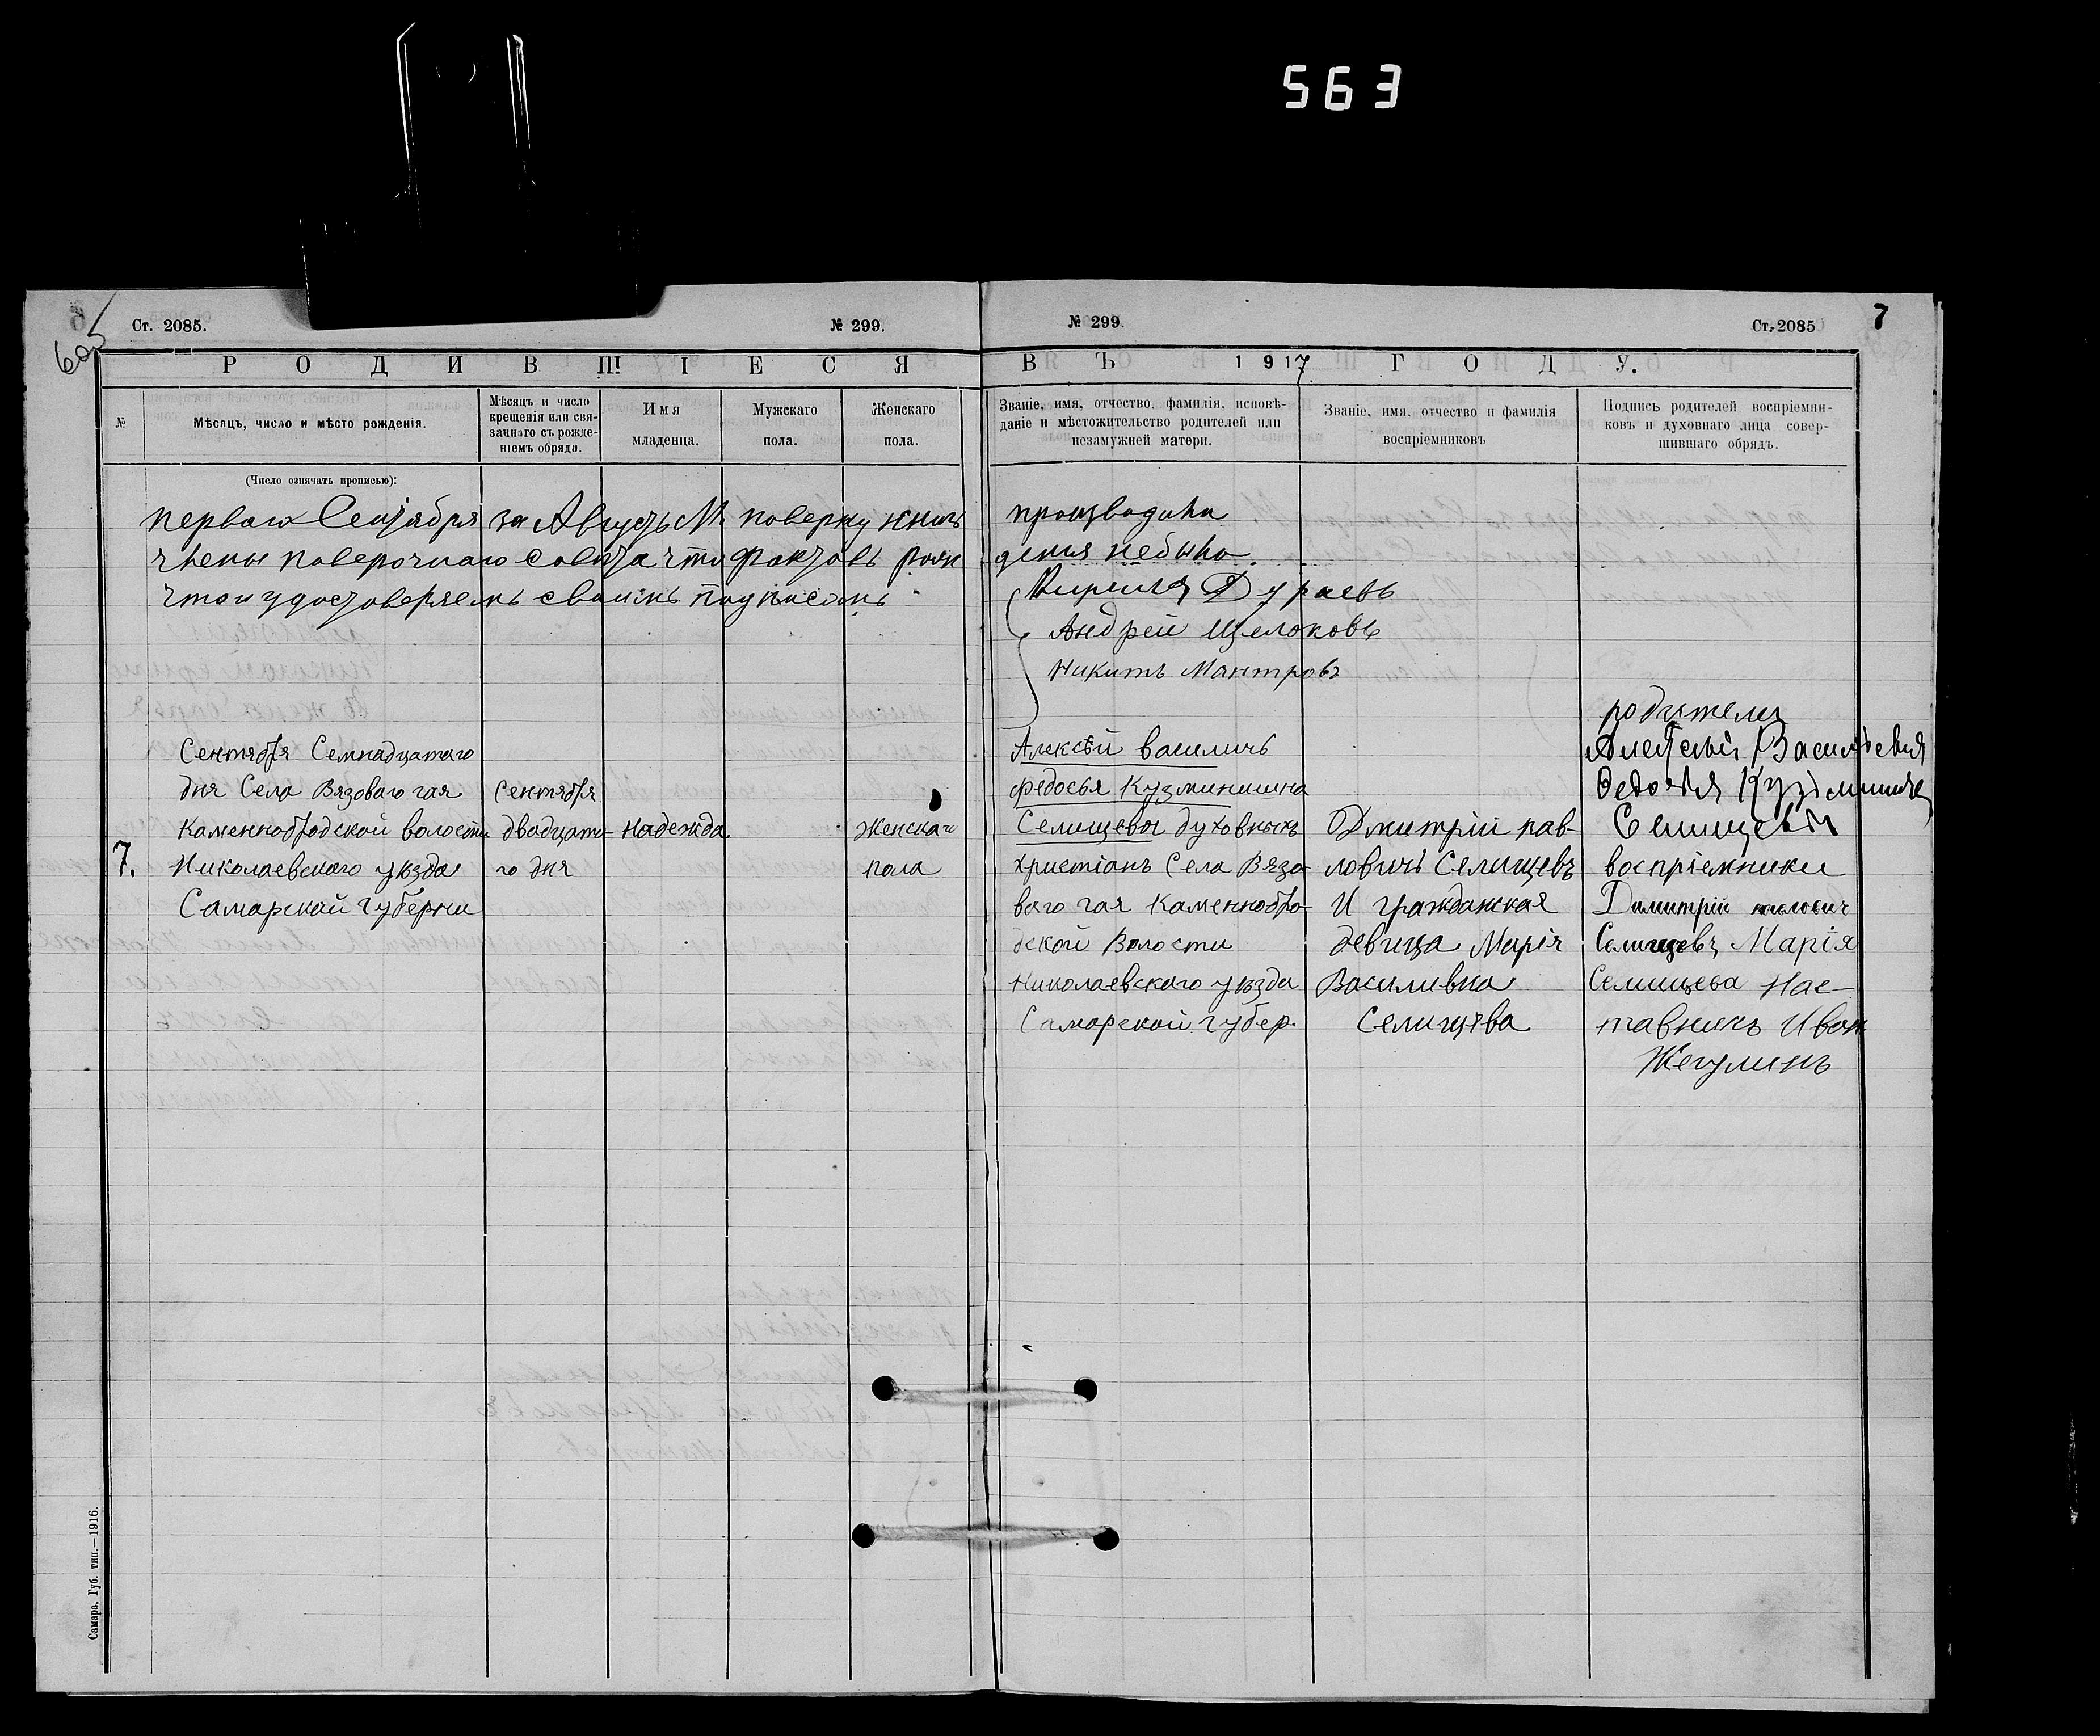 563
Ст. 2085.
№ 299.
№ 299.
Ст. 2085
7
РОДИВШІЕСЯ
ВЪ 1917 ГОДУ.
№
Мѣсяцъ, число и мѣсто рожденія.
Мѣсяцъ и число
крещенія или свя-
зачнаго съ рожде-
ніемъ обряда.
Имя
младенца.
Мужскаго
пола.
Женскаго
пола.
Званіе, имя, отчество, фамилія, исповѣ-
даніе и мѣстожительство родителей или
незамужней матери.
Званіе, имя, отчество и фамилія
воспріемниковъ
Подпись родителей воспріемни-
ковъ и духовнаго лица совер-
шившаго обрядъ.
(Число означать прописью):
перваго Сентября за Августъ М. поверку книгъ производили
члены поверочнаго совѣта что фактовъ рож дения небыло
что и удостоверяемъ своимъ подписомъ
Кирилъ Дураевъ
Андрей Щелоковъ
Никитъ Мантровъ
7.
Сентября Семнадцатого
дня Села Вязоваго гая
Каменнобродской волости
Николаевского уѣзда
Самарской Губерни
Сентября
двадцато-
го дня
Надежда
Женскаг
пола
Алексѣй василичъ
федосья Кузминишна
Селищевы духовныхъ
христіанъ Села Вязо-
вого гая Каменнобро-
дской Волости
Николаевского уѣзда
Самарской губер.
Дмитрий пав-
ловичъ Селищевъ
И гражданская
девица Марія
Василивна
Селищева
родители
Алексѣй Василъевия
Федосья Кузминишна
Селищевы
воспріемники
Димитрій павлович
Селищевъ Марія
Селищева Нас-
тавникъ Иван
Жегулинъ
Самара, Губ. тип.—1916.